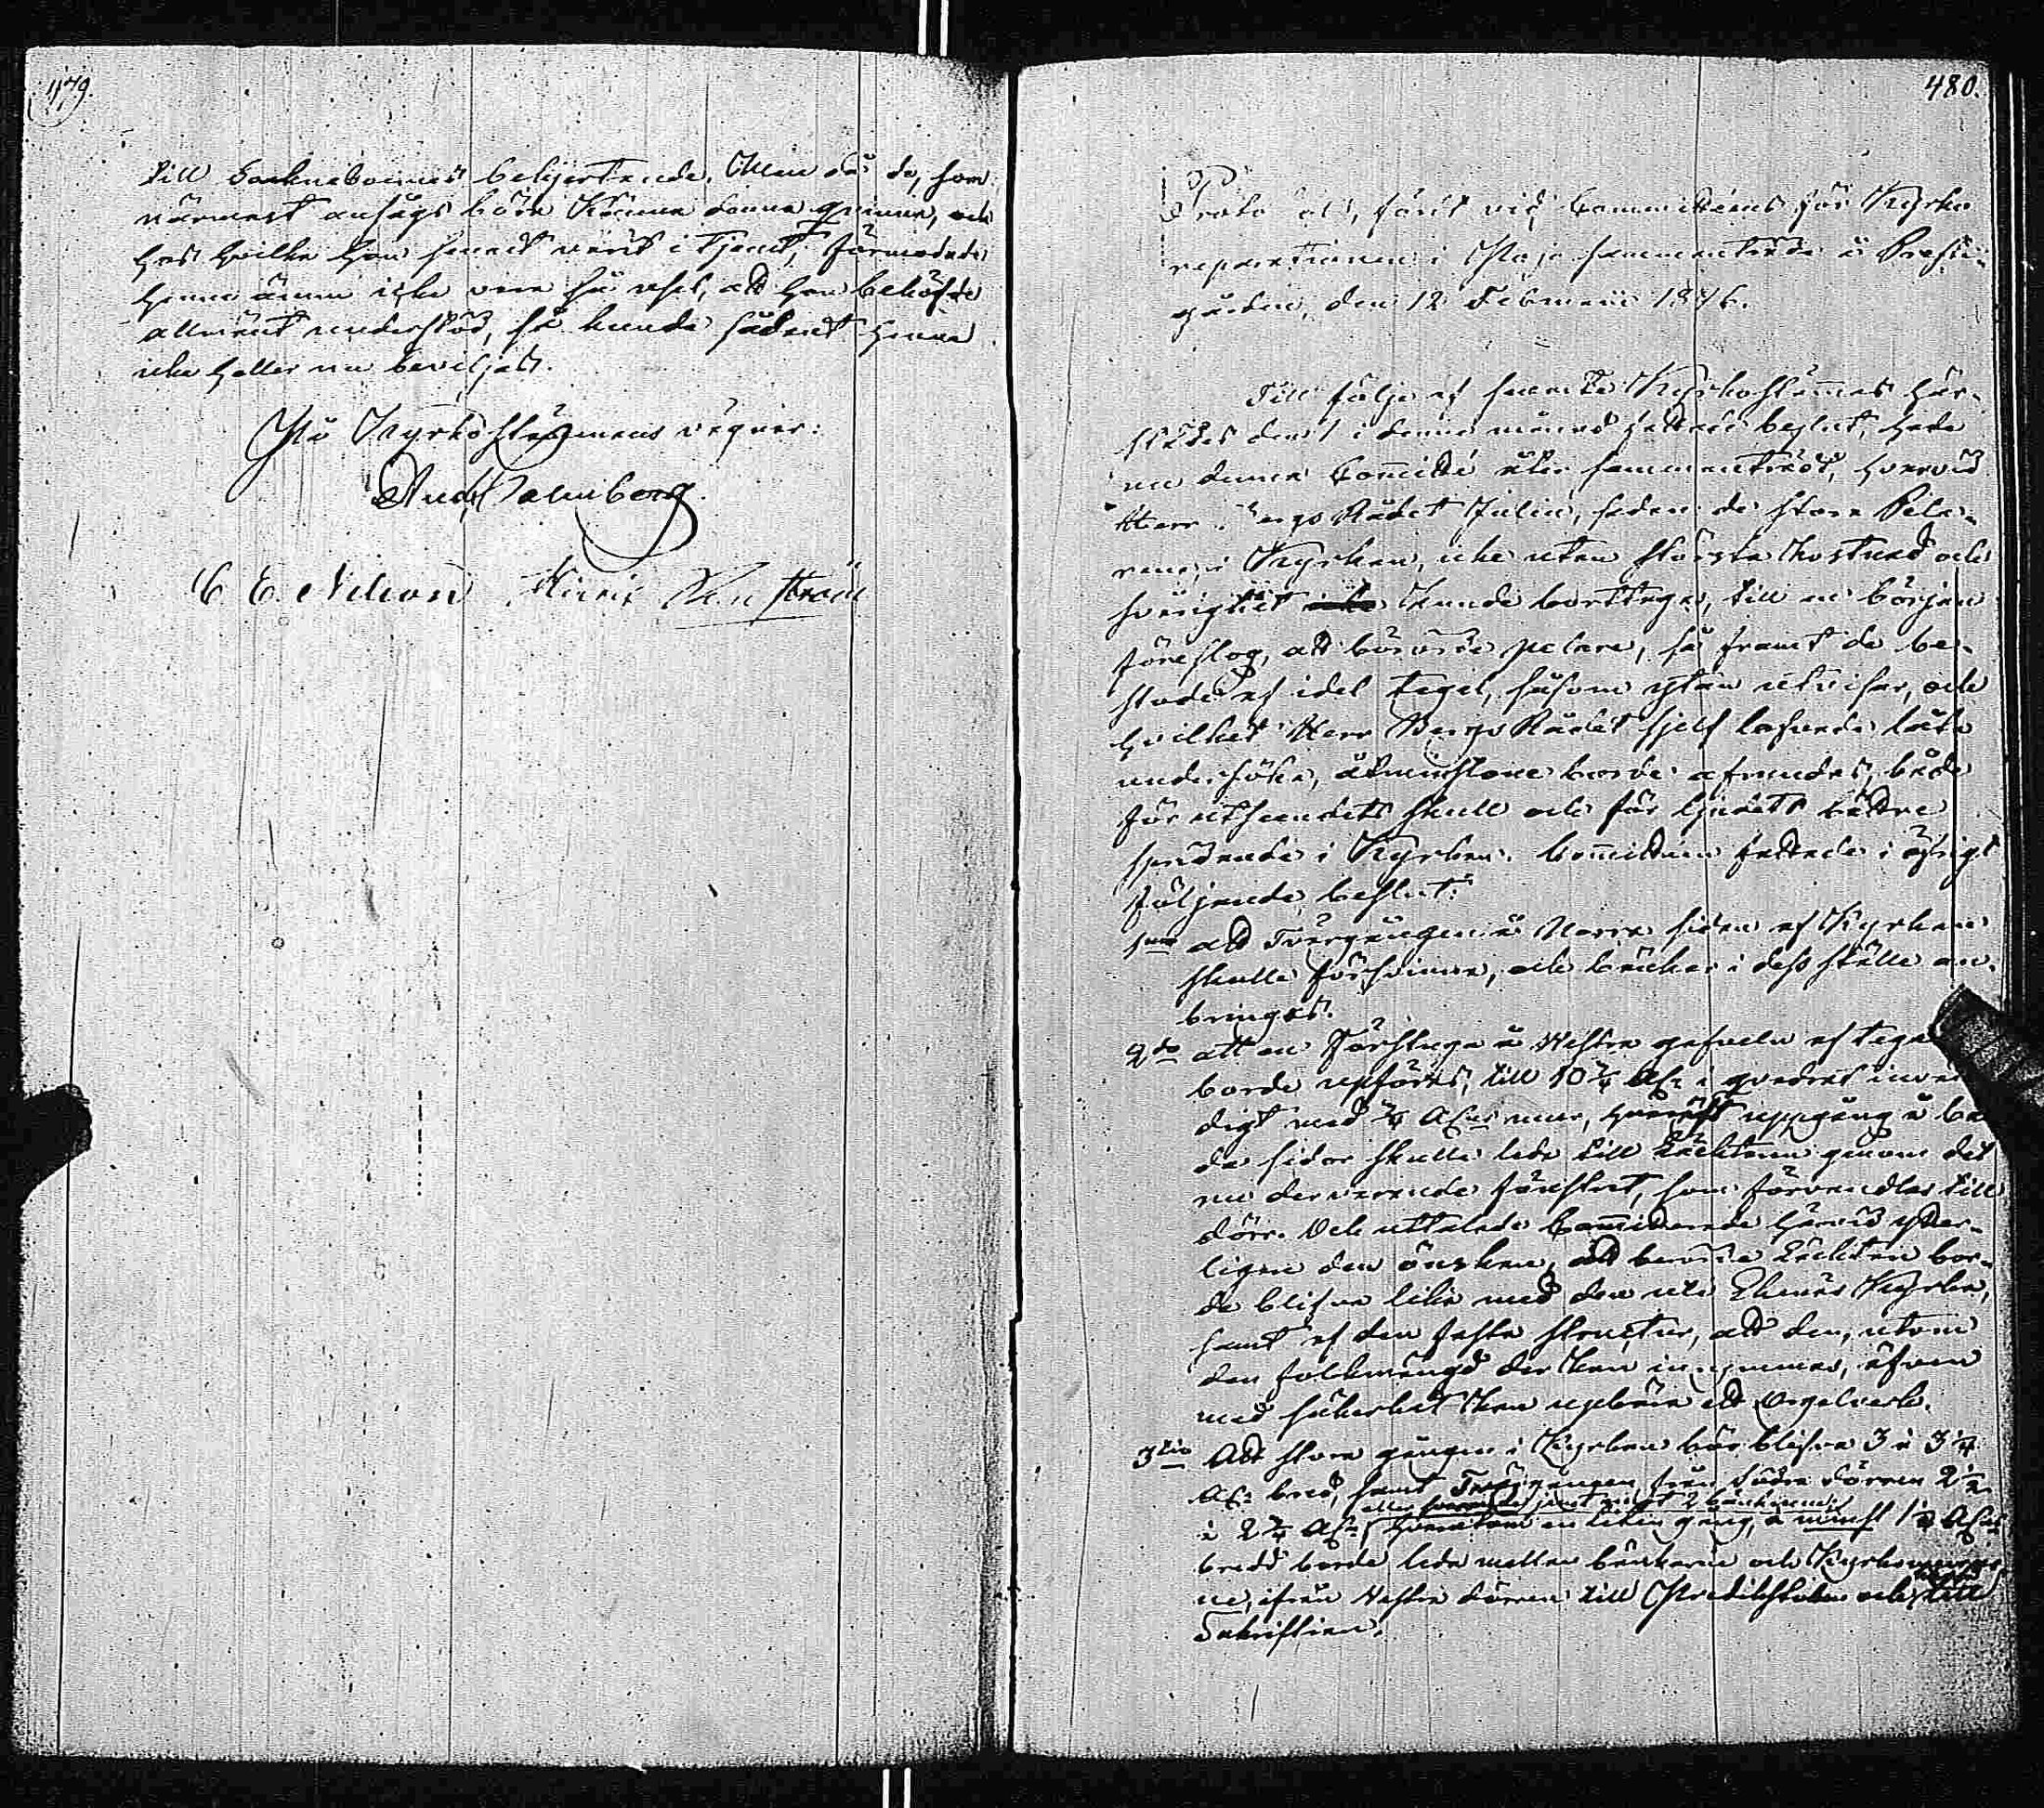 479.
till Sockneboernes behjertande. Men då de, som
närmast ansågs böra känna denna qvinna, och
hos hvilka hon senast varit i tjenst, förmodade
henne ännu icke vara så usel, att hon behöfde
allmänt understöd, så kunde sådant henne
icke heller nu beviljas.
På Kyrkostämmans vägnar:
And. Malmborg.
C E. Nelson Henric
480.
Protocoll, fördt vid Committéens för Kyrko
reparationen i Pojo sammanträde å Prest-
gården, den 12 Februarii 1846.
Till följe af samma Kyrkostämmas här-
städes den 1 i denna månad fattade beslut, hade
nu denna Committé åter sammanträdt, hvarvid
Herr BergsRådet Julin, sedan de stora Pela-
rene i Kyrkan, icke utan största kostnad och
svårighet kunde borttagas, till en början
föreslog, att berörde pelare, så framt de be-
stode af idel tegel, såsom ytan utvisar, och
hvilket Herr BergsRådet sjelf lofvade låta
undersöka, åtminstone borde afrundas, både
för utseendets skull och för ljudets bättre
spridande i Kyrkan. Committéen fattade i öfrigt
följande beslut:
1mo att Tvärgången å Norra sidan af Kyrkan
skulle försvinna, och bänkar i dess ställe an-
bringas.
2do att en Förstuga å Westra gafveln af tegel
borde uppföras, till 10 3/4 Aln i qvadrat inven-
digt med 3/4 Alns mur, hvarest uppgång å bä-
da sidor skulle leda till Läcktaren genom det
nu dervarande fönstret, som förvandlas till
dörr. Och uttalade Committerade härvid ytter-
ligare den önskan, att berörde Läcktare bor-
de blifva lika med den uti Ekenäs Kyrka,
samt af den fasta structur, att den, utom
den folkmängd der kan inrymmas, äfven
med säkerhet kan uppbära ett Orgelverk.
3tio Att stora gången i Kyrkan bör blifva 3 à 3 1/4
Aln bred, samt Tvärgången från Södra dörren 2 1/2
eller jemt emot 2 bänkarne
à 2 3/4 Aln, hvarutom en liten gång, à minst 1 1/2 Alns
bredd borde leda mellan bänkarne och Kyrko
ne, ifrån Westra dörren till Predikstolen och till
Sakristian.